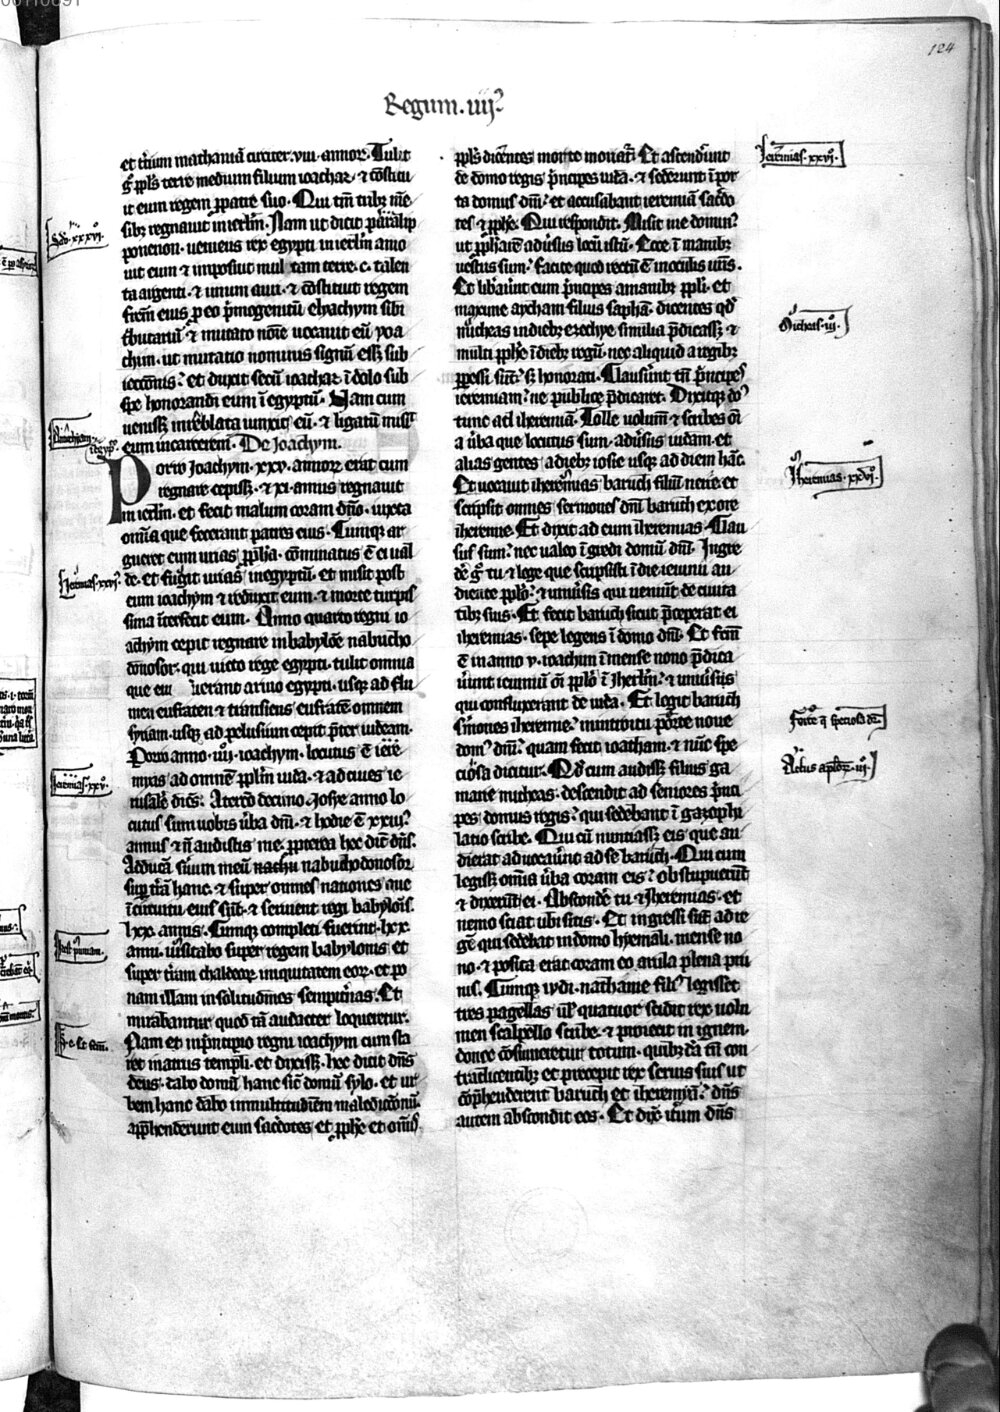 124
Regum. iiij.
et tcium mathaniā circiter. viii. annoꝝ. Tulit
g̊ ppl̄s terre medium filium ioachaz. ⁊ ɔ̄stitu
it eum regem p patre suo. Qui tm̄ tribꝫ mē
sibꝫ regnauit in ierlm̄. Nam ut dicit paralip
ponenon. ueniens rex egypti in ierlm̄ amo
uit eum ⁊ imposuit mulctam terre. c. talen
ta argenti. ⁊ unum auri. ⁊ ɔ̄stituit regem
frēm eius p eo p̄mogenitū elyachym sibi
t̄butariū ⁊ mutato noīe uocauit eū yoa
chim. ut mutatio nominis signū eēt sub
iectionis. et duxit secū ioachaz ī dolo sub
spe honorandi eum ī egyptū. Nam cum
uenisset in reblata uinxit eū. ⁊ ligatū misit
eum incarcerem. De Joachym.
Porro Joachym. xxv. annoꝝ erat cum
regnare cepisset. ⁊ xi. annis regnauit
in ierlm̄. et fecit malum coram dn̄o. iuxta
omīa que fecerant patres eius. Cumqꝫ ar
gueret eum urias ppheta. ɔ̄minatus ē ei ual
de. et fugit urias in egyptū. et misit post
eum ioachym ⁊ reduxit eum. ⁊ morte turpis
sima īterfecit eum. Anno quarto regni io
achym cepit regnare in babylōe nabucho
donosor. qui uicto rege egypti. tulit omnia
que eiꝰ fuerant a riuo egypti. usqꝫ ad flu
men eufraten ⁊ transiens eufratē omnem
syriam. usqꝫ ad pelusium cepit p̄ter iudeam.
Porro anno. iiij. ioachym. locutus ē iere
myas ad omnē pplm̄ iuda. ⁊ ad ciues ie
rusalē dicēs. A tercō decimo. iosye anno lo
cutus sum uobis ūba dn̄i. ⁊ hodie ē xxiij.
annus ⁊ n̄ audistis me. propterea hec dic̄ dn̄s.
Adducā seruum meū nabuchodonosor
sup t̄rā hanc. ⁊ super omnes nationes que
ī circuitu eius sūt. ⁊ seruient regi babylōis.
lxx. annis. Cumqꝫ completi fuerint. lxx.
anni. uisitabo super regem babylonis et
super t̄ram chaldeoꝝ iniquitatem eoꝝ. et po
nam illam in solitudines sempiternas. Et
mirabantur quod tā audacter loqueretur.
Nam et in p̄ncipio regni ioachym cum sta
ret in atrius templi. et dixisset. hec dicit dn̄s
deus. dabo domū hanc sic̄ domū sylo. et ur
bem hanc dabo in multitudinem maledictionū.
app̄henderunt eum sacdotes et pphe et omīs
ppl̄s dicentes morte moriatr̄. Et ascendrūnt
de domo regis p̄ncipes iuda. ⁊ sederunt ī por
ta domus dn̄i. et accusabant ieremiam sacdo
tes ⁊ pphe. Qui respondit. Misit me dominꝰ
ut ppharē aduersus locū istū. Ecce ī manibꝫ
uestris sum. facite quod rectū ē in oculis uris.
Et librauerunt eum p̄ncipes a manibꝫ ppli. et
maxime aycham filius saphā. dicentes qd̄
micheas in diebꝫ ezechye similia p̄dicasset. ⁊
multi pphe ī diebꝫ regū. nec aliquid a regibꝫ
ppessi sūt. s; honorati. Clauserunt tm̄ p̄ncipes
ieremiam. ne publice p̄dicaret. Dixitqꝫ dn̄s
tunc ad iheremiā. Tolle uolum̄ ⁊ scribes oīa
ūba que locutus sum. aduersus iudam. et
alias gentes. a diebꝫ iosie usqꝫ ad diem hāc.
Et uocauit iheremias baruch filiū nerie. et
scripsit omnes sermones dn̄i baruch ex ore
iheremie. Et dixit ad eum iheremias. Clau
sus sum. nec ualeo īgredi domū dn̄i. Ingre
de g̊ tu ⁊ lege que scripsisti ī die ieiunii au
diente pplo. ⁊ uniuersis qui ueniūt de ciuita
tibꝫ suis. Et fecit baruch sicut p̄ceperat ei
iheremias. sepe legens ī domo dn̄i. Et fcm̄
ē in anno v. ioachim ī mense nono p̄dica
uerunt ieiuniū oī pplo ī Jherlm̄. ⁊ uniuersis
qui confluxerant de iuda. Et legit baruch
smones iheremie. in introitu porte noue
domꝰ dn̄i. quam fecit ioatham. ⁊ nūc spe
ciosa dicitur. Qd̄ cum audisset filius ga
marie micheas. descendit ad seniores p̄nci
pes domus regis. qui sedebant ī gazophi
latio scribe. Qui cū nuntiasset eis que au
dierat aduocauerunt ad se baruch. Qui cum
legisset omīa ūba coram eis. obstupuerunt
⁊ dixerunt ei. Absconde tu ⁊ iheremias. et
nemo sciat ubi sitis. Et ingressi sūt ad re
gē qui sedebat in domo hyemali. mense no
no. ⁊ posita erat coram eo arula plena pru
nis. Cumqꝫ iudi. nathanie filiꝰ legisset
tres pagellas uel quatuor scidit rex uolu
men scalpello scribe. ⁊ proiecit in ignem.
donec ɔ̄sumeretur totum. quibꝫdā tn̄ con
tradicentibꝫ et precepit rex seruis suis ut
ɔ̄phenderent baruch et iheremiā. dn̄s
autem abscondit eos. Et dixit iterum dn̄s
Jeremias. xxvj.
Micheas. iij.
Jheremias. xxxvj.
Actus aploꝝ. iij.
Jeremias. xxvj.
Jeremias. xxv.